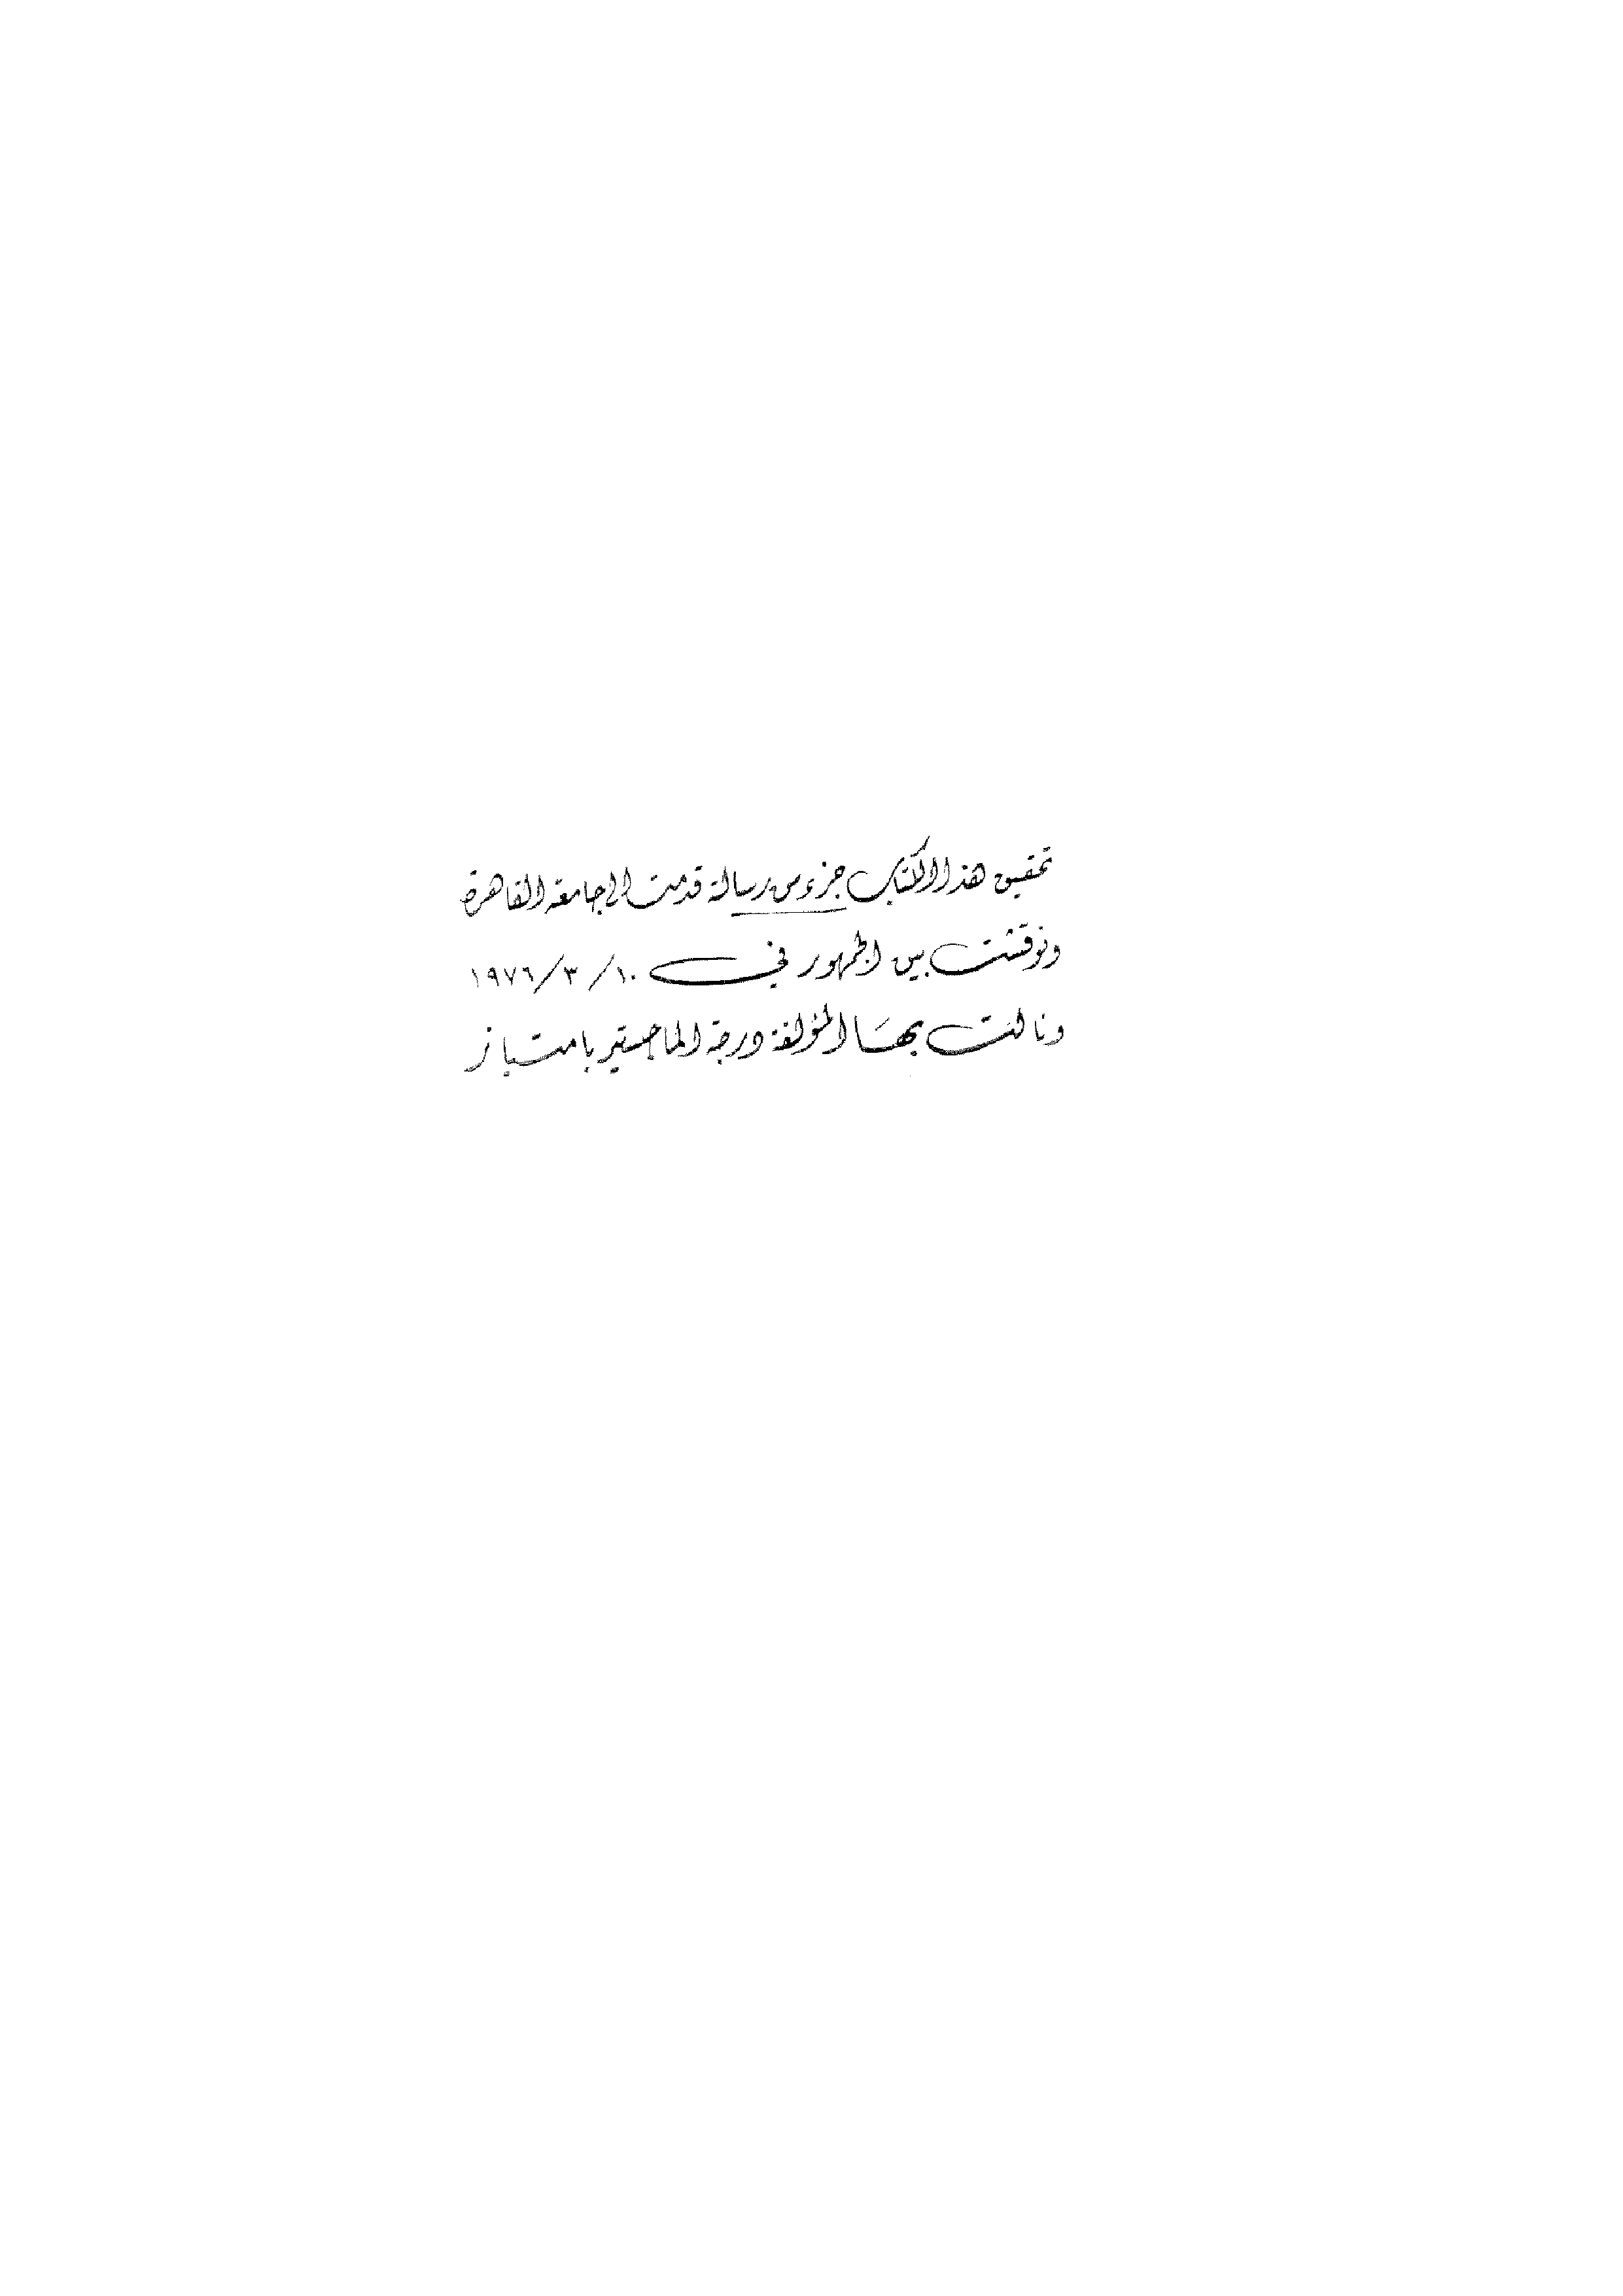 تحقيق هذا الكتاب جزء من رسالة قدمت إلى جامعة القاهرة
ونوقشت بين الجمهور في ١٠/ ٣/ ١٩٧٦
ونالت بها المؤلفة درجة الماجستير بامتياز